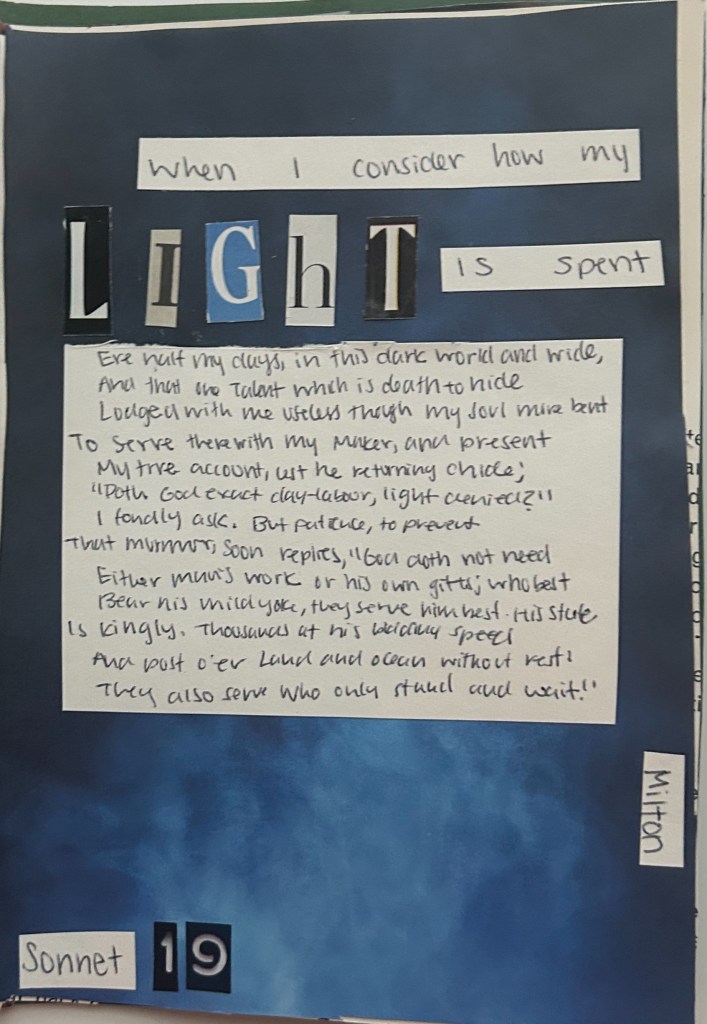 when I consider how my
LIGhT is spent
Ere half my days, in this dark world and wide,
And that one Talent which is death to hide
Lodged with me useless though my soul more bent
To serve therewith my Maker, and present
My true account, lest he returning chide;
"Doth God exact day-labour, light denied?"
I fondly ask. But patience, to prevent
That murmur, soon replies, "God doth not need
Either man's work or his own gifts; who best
Bear his mild yoke, they serve him best. His state
Is kingly. Thousands at his bidding speed
And post o'er Land and ocean without rest:
They also serve who only stand and wait."
Milton
Sonnet 19